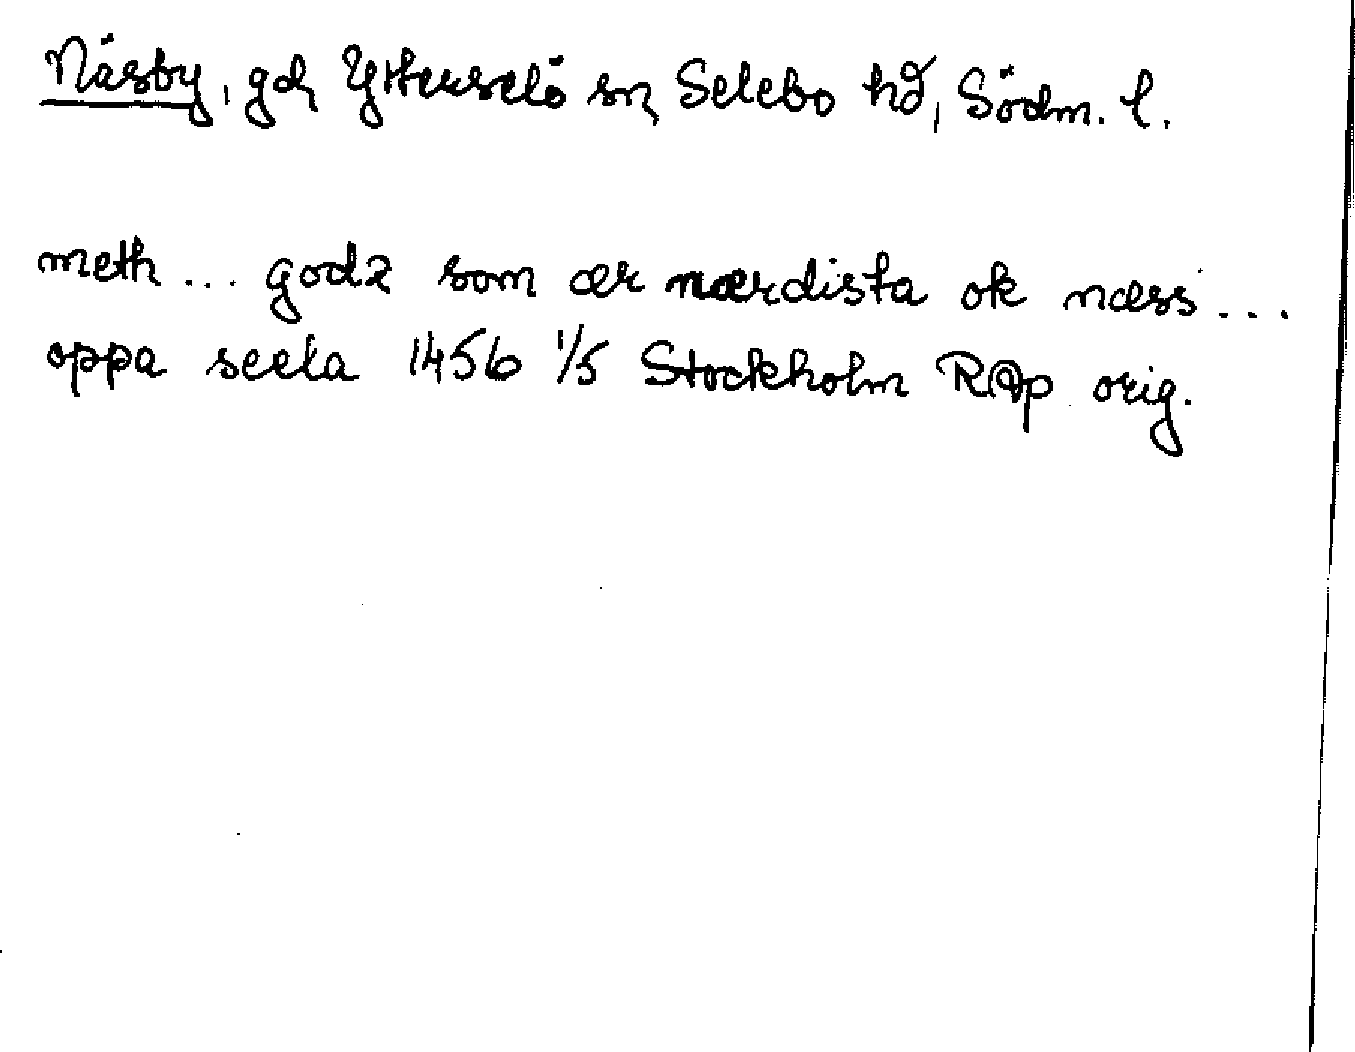 Näsby, gd, Ytterselö sn, Selebo hd, Södm. l.
meth ... godz som ær nærdista ok næss ...
oppa seela 1456 1/5 Stockholm RAp orig.